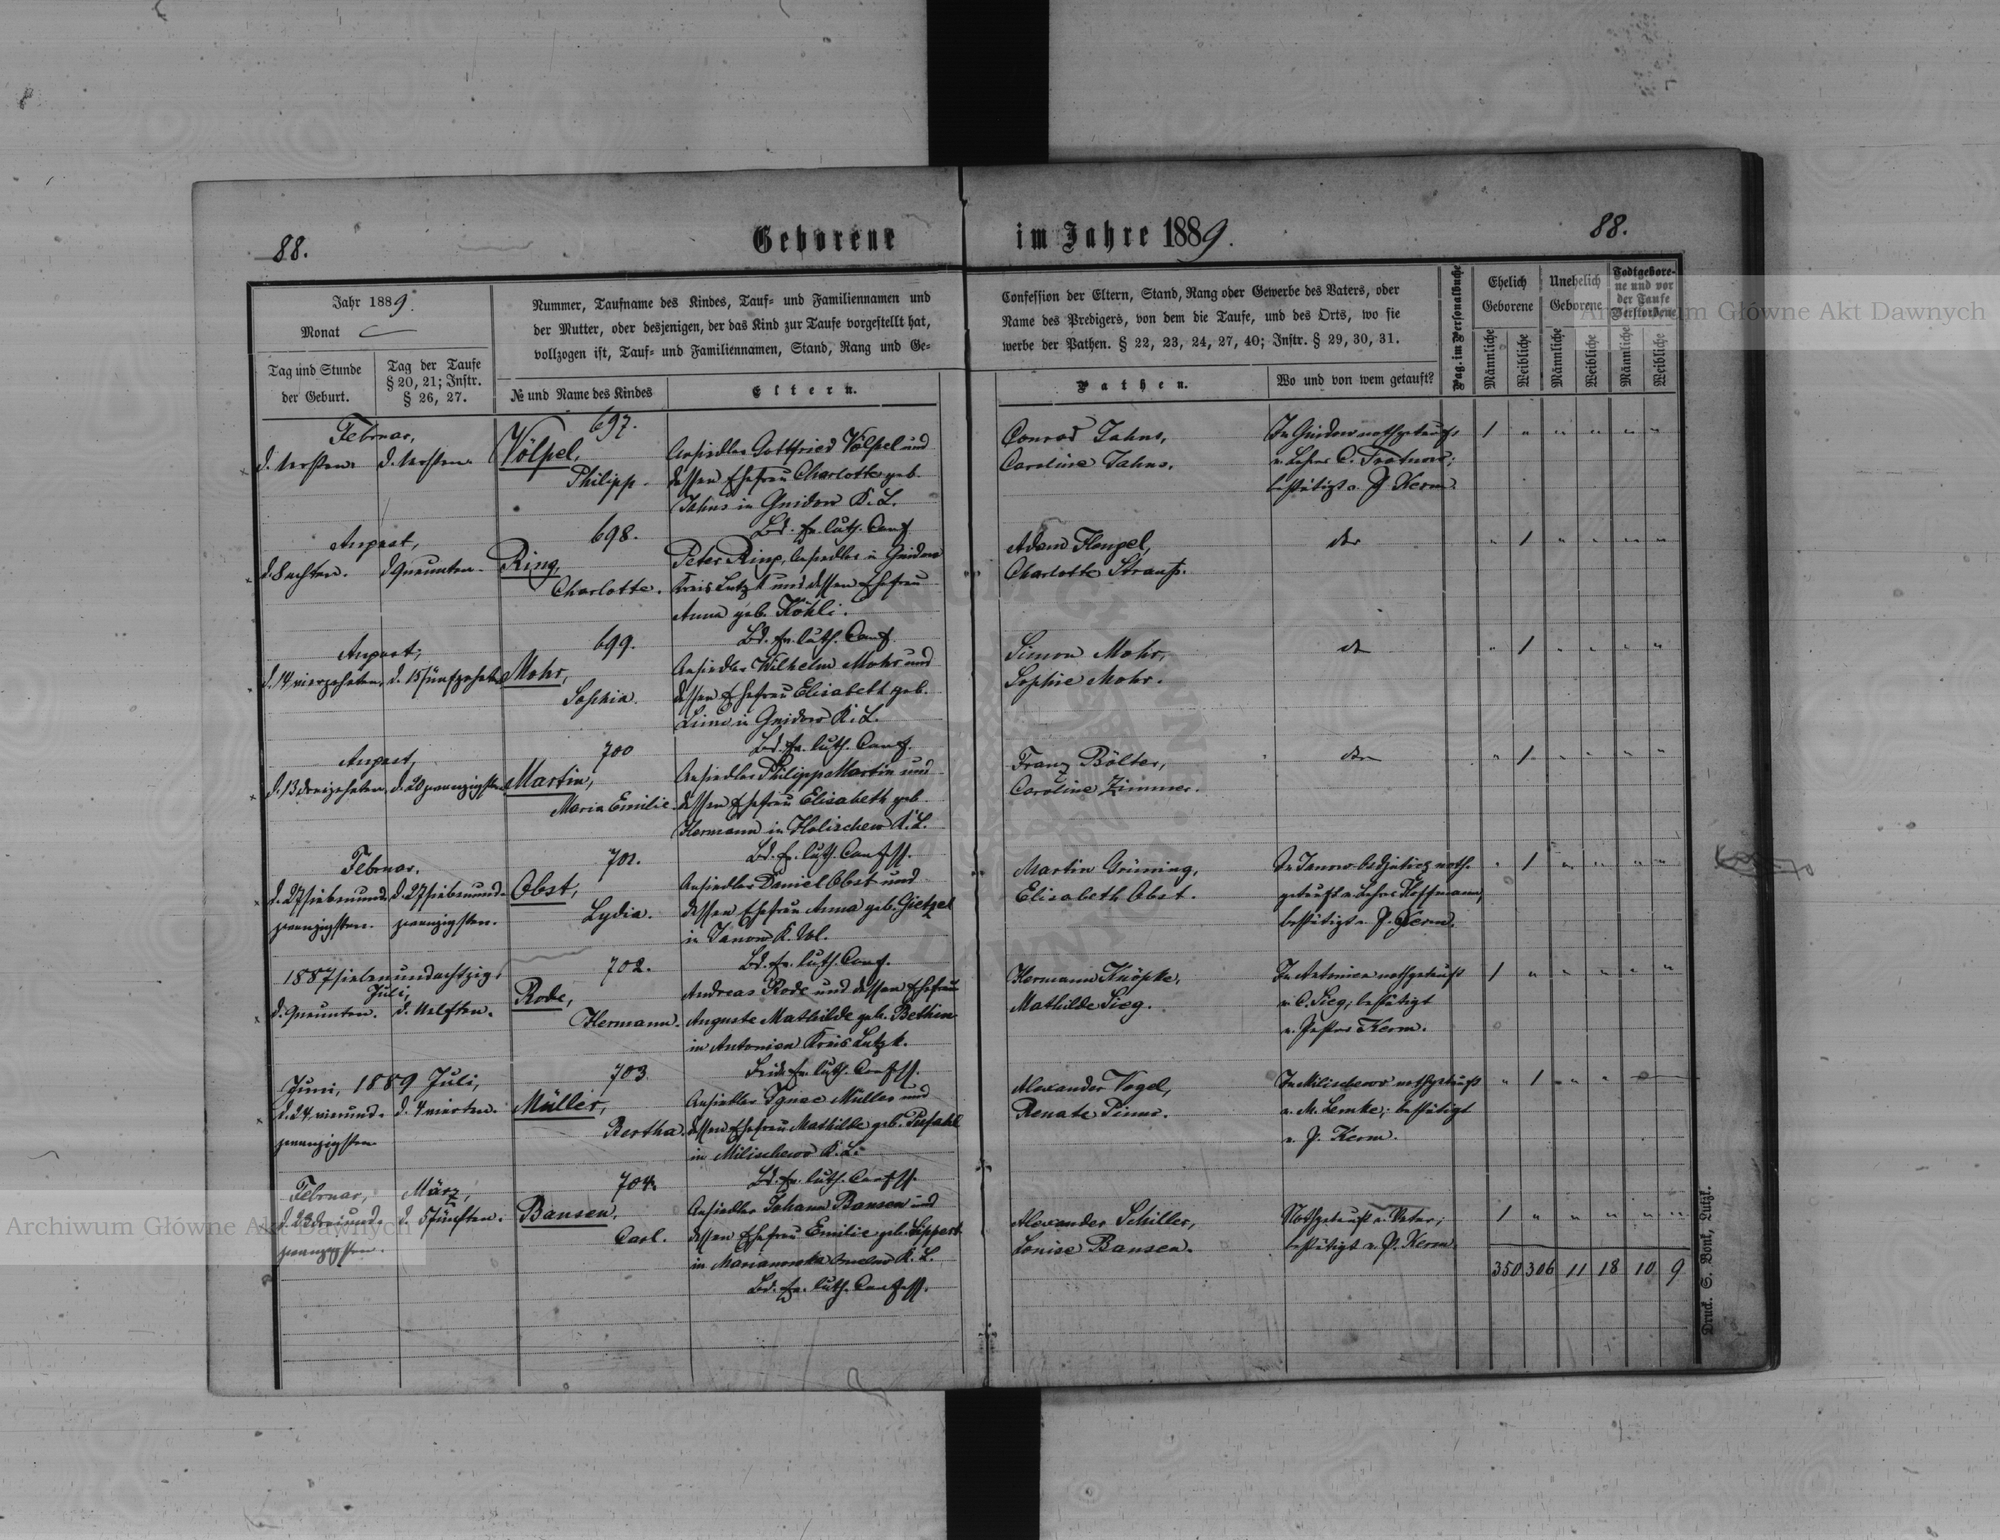 88.
Geborene im Jahre 1889.
88.
Jahr 1889.
Monat
Tag und Stunde der Geburt.
Tag der Taufe § 20, 21; Instr. § 26, 27.
Nummer, Taufname des Kindes, Tauf- und Familiennamen und
der Mutter, oder desjenigen, der das Kind zur Taufe vorgestellt hat,
vollzogen ist, Tauf- und Familiennamen, Stand, Rang und Ge-
№ und Name des Kindes
Eltern.
Confession der Eltern, Stand, Rang oder Gewerbe des Vaters, oder
Name des Predigers, von dem die Taufe, und des Orts, wo sie
werbe der Pathen. § 22, 23, 24, 27, 40; Instr. § 29, 30, 31.
Pathen.
Wo und von wem getauft?
Pag. im Personalbuche
Ehelich Geborene
Unehelich Geborene
Todtgebore-
ne und vor
der Taufe
Verstorbene
Männliche
Weibliche
Männliche
Weibliche
Männliche
Weibliche
Februar,
d. ersten.
d. ersten.
697.
Völpel,
Philipp.
Ansiedler Gottfried Völpel und
dessen Ehefrau Charlotte geb.
Jahns in Gnidow K. L.
Bd. ev. luth. Conf.
Conrad Jahns,
Caroline Jahns.
In Gnidow nothgetauft
v. Lehrer C.
bestätigt v. P. Kerm.
1 " " " " "
August,
d. 8 achten.
d. 9 neunten.
698.
Ring,
Charlotte.
Peter Ring, Ansiedler in Gnidow
Kreis Lutzk und dessen Ehefrau
Anna geb. Köhli.
Bd. ev. luth. Conf.
Adam Hengel,
Charlotte Strauß.
" 1 " " " "
August,
d. 14 vierzehnten.
d. 15 fünfzehnten
699.
Mohr,
Sophia.
Ansiedler Wilhelm Mohr und
dessen Ehefrau Elisabeth geb.
in Gnidow K. L.
Bd. ev. luth. Conf.
Simon Mohr,
Sophie Mohr.
" 1 " " " "
August,
d. 13 dreizehnten.
d. 20 zwanzigsten
700
Martin,
Maria Emilie.
Ansiedler Philipp Martin und
dessen Ehefrau Elisabeth geb.
Hermann in Holischew K. L.
Bd. ev. luth. Confess.
Franz Bölter,
Caroline Zimmer.
" 1 " " " "
Februar,
d. 27 siebenund-
zwanzigsten.
d. 27 siebenund-
zwanzigsten.
701.
Obst,
Lydia.
Ansiedler Daniel Obst und
dessen Ehefrau Anna geb. Gietzel
in Janow K. Wl.
Bd. ev. luth. Conf.
Martin Grüning,
Elisabeth Obst.
In Janow noth-
getauft v. Lehrer Hoffmann,
bestätigt v. P. Kerm.
" 1 " " " "
1887 siebenundachtzig,
Juli,
d. 9 neunten.
d. elften.
702.
Rode,
Hermann.
Andreas Rode und dessen Ehefrau
Auguste Mathilde geb. Bethin
in Antonien Kreis Lutzk.
Beide ev. luth. Confess.
Hermann Knöpke,
Mathilde Sieg.
In Antonien nothgetauft
v. C. Sieg; bestätigt
v. Pastor Kerm.
1 " " " " "
Juni, 1889 Juli,
d. 24 vierund-
zwanzigsten
d. 4 vierten.
703.
Müller,
Bertha.
Ansiedler Ignac Müller und
dessen Ehefrau Mathilde geb. Pufahl
in Milischewo K. L.
Bd. ev. luth. Confess.
Alexander Vogel,
Renate Pinno.
In Milischewo nothgetauft
v. M. Lemke; bestätigt
v. P. Kerm.
" 1 " " "
Februar,
März,
d. 23 dreiund-
zwanzigsten.
d. 5 fünften.
704.
Bansen,
Carl.
Ansiedler Johann Bansen und
dessen Ehefrau Emilie geb. Lippert
in Marianowka K. L.
Bd. ev. luth. Confess.
Alexander Schiller,
Louise Bansen.
Nothgetauft v. Vater;
bestätigt v. P. Kerm
1 " " " " "
350 306 11 18 10 9
Druck. S. Bonk, Lutzk.
Archiwum Główne Akt Dawnych
Archiwum Główne Akt Dawnych